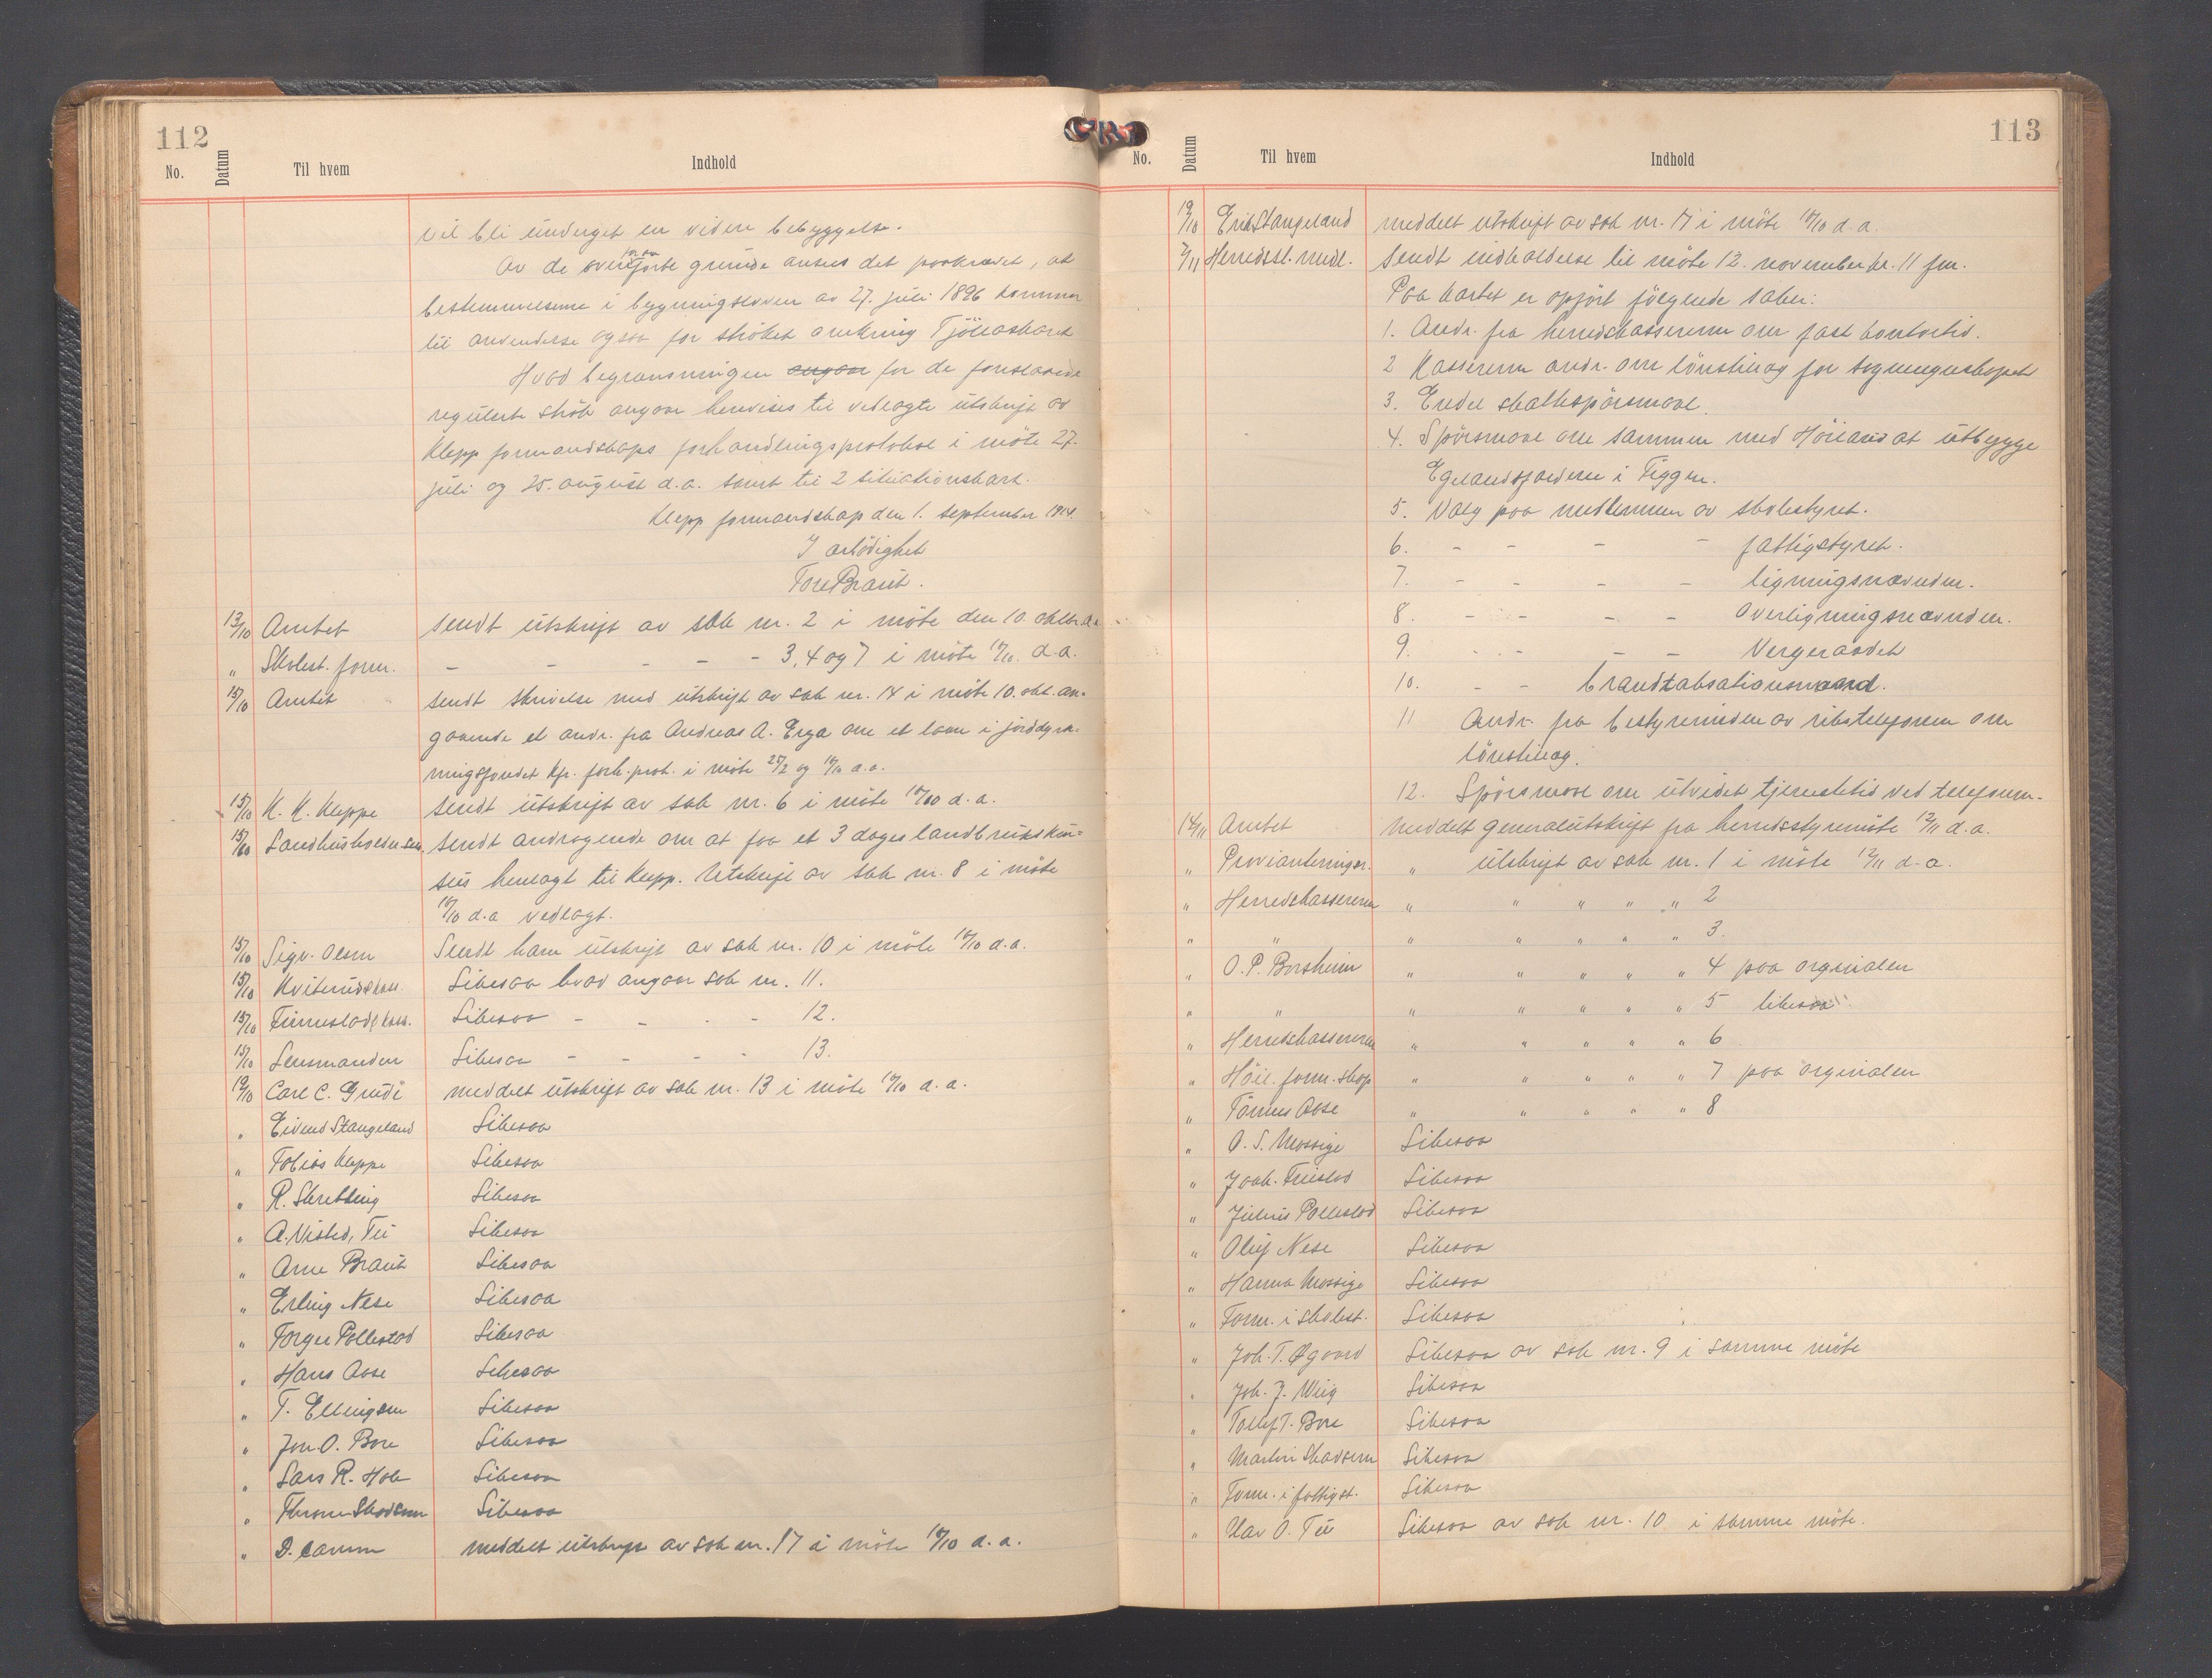 112
No. Datum Til hvem Indhold
vil bli underget en videre bebyggelse.
Av de ovenforan førte grunde ansees det paakrævet, at
bestemmelserne i bygningsloven av 27. juli 1896 kommer
til anvendelse ogsaa for strøket omkring Tjøtta
Hvad begrænsningen angaar for de foreslaaede
regulerte strøk angaar henvises til vedlagte utskrift av
Klepp formandskaps forhandlingsprotokol i møte 27.
juli og 25. august d.a. samt til 2 situationskart.
Klepp formandskap den 1. september 1914.
I ærbødighet
Tore Braut.
13/10 Amtet sendt utskrift av sak nr. 2 i møte den 10. oktbr. d.a.
" Skolest. form. - - - - - 3, 4 og 7 i møte 10/10. d.a.
15/10 Amtet sendt skrivelse med utskrift av sak nr. 14 i møte 10. okt. an-
gaaende et andr. fra Andreas A. Erga om et laan i jorddyrk-
ningsfondet kfr. forh.prot. i møte 28/2 og 10/10 d.a.
15/10 K. K. Kleppe sendt utskrift av sak nr. 6 i møte 10/10 d.a.
15/10 Landhusholdn.sel. sendt andragende om at faa et 3 dages landbrukskur-
sus henlagt til Klepp. Utskrift av sak nr. 8 i møte
10/10 d.a vedlagt.
15/10 Sigv. Olsen Sendt ham utskrift av sak nr. 10 i møte 10/10 d.a.
15/10 Likesaa hvad angaar sak nr. 11.
15/10 Likesaa - - - - 12.
15/10 Lensmanden Likesaa - - - - 13.
19/10 Carl C. Grude meddelt utskrift av sak nr. 13 i møte 10/10 d.a.
" Eivind Stangeland Likesaa
" Tobias Kleppe Likesaa
" R. Skretting Likesaa
" A. Visted, Tu Likesaa
" Arne Braut Likesaa
" Erling Nese Likesaa
" Torger Pollestad Likesaa
" Hans Aase Likesaa
" T. Ellingsen Likesaa
" Jon O. Bore Likesaa
" Lars R. Hole Likesaa
" Skadsem Likesaa
" meddelt utskrift av sak nr. 17 i møte 10/10 d.a.
113
No. Datum Til hvem Indhold
19/10 Erik Stangeland meddelt utskrift av sak nr. 17 i møte 10/10 d.a.
7/11 Herredsst. medl. sendt indkaldelse til møte 12. november kl. 11 fm.
Paa kartet er opført følgende saker:
1. Andr. fra herredskassereren om fast kontortid.
2 Kassereren andr. om lønstillæg for
3. Endel skattespørsmaal.
4. Spørsmaal om sammen med Høiland at utbygge
i Figgen.
5. Valg paa medlemmer av skolestyret.
6. - - - - fattigstyret.
7. - - - - ligningsnævnden.
8. - - - - Overligningsnævnden.
9. - - - - Vergeraadet
10. - - brandtakstationsmænd.
11 Andr. fra bestyrerinden av rikstelefonen om
lønstillæg.
12. Spørsmaal om utvidet tjenestetid ved telefonen.
14/11 Amtet meddelt generalutskrift fra herredsstyremøte 12/11 d.a.
" Provianteringsr. " utskrift av sak nr. 1 i møte 12/11 d.a.
" Herredskassereren " " " " " 2
" " " " " " " 3.
" O. P. Borsheim " " " " " 4 paa orginalen
" " " " " " " 5 likesaa
" Herredskassereren " " " " " 6
" Høil. form.skap " " " " " 7 paa orginalen
" Tønnes Aase " " " " " 8
" O. S. Mossige Likesaa
" Joak. Friestad Likesaa
" Julius Pollestad Likesaa
" Oluf Nese Likesaa
" Hanna Mossige Likesaa
" Form. i skolest. Likesaa
" Joh. T. Øgaard Likesaa av sak nr. 9 i samme møte
" Joh. J. Wiig Likesaa
" Tollef T. Bore Likesaa
" Martin Skadsem Likesaa
" Form. i fattigst. Likesaa
" Olav O. Tu Likesaa av sak nr. 10 i samme møte.